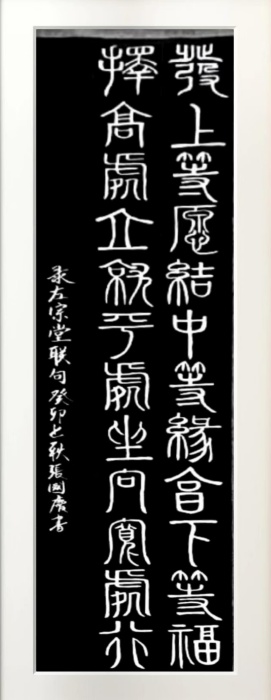 發上等愿結中等緣享下等福
擇高處立就平處坐向寬處行
录左宗堂联句癸卯之秋張国庆书